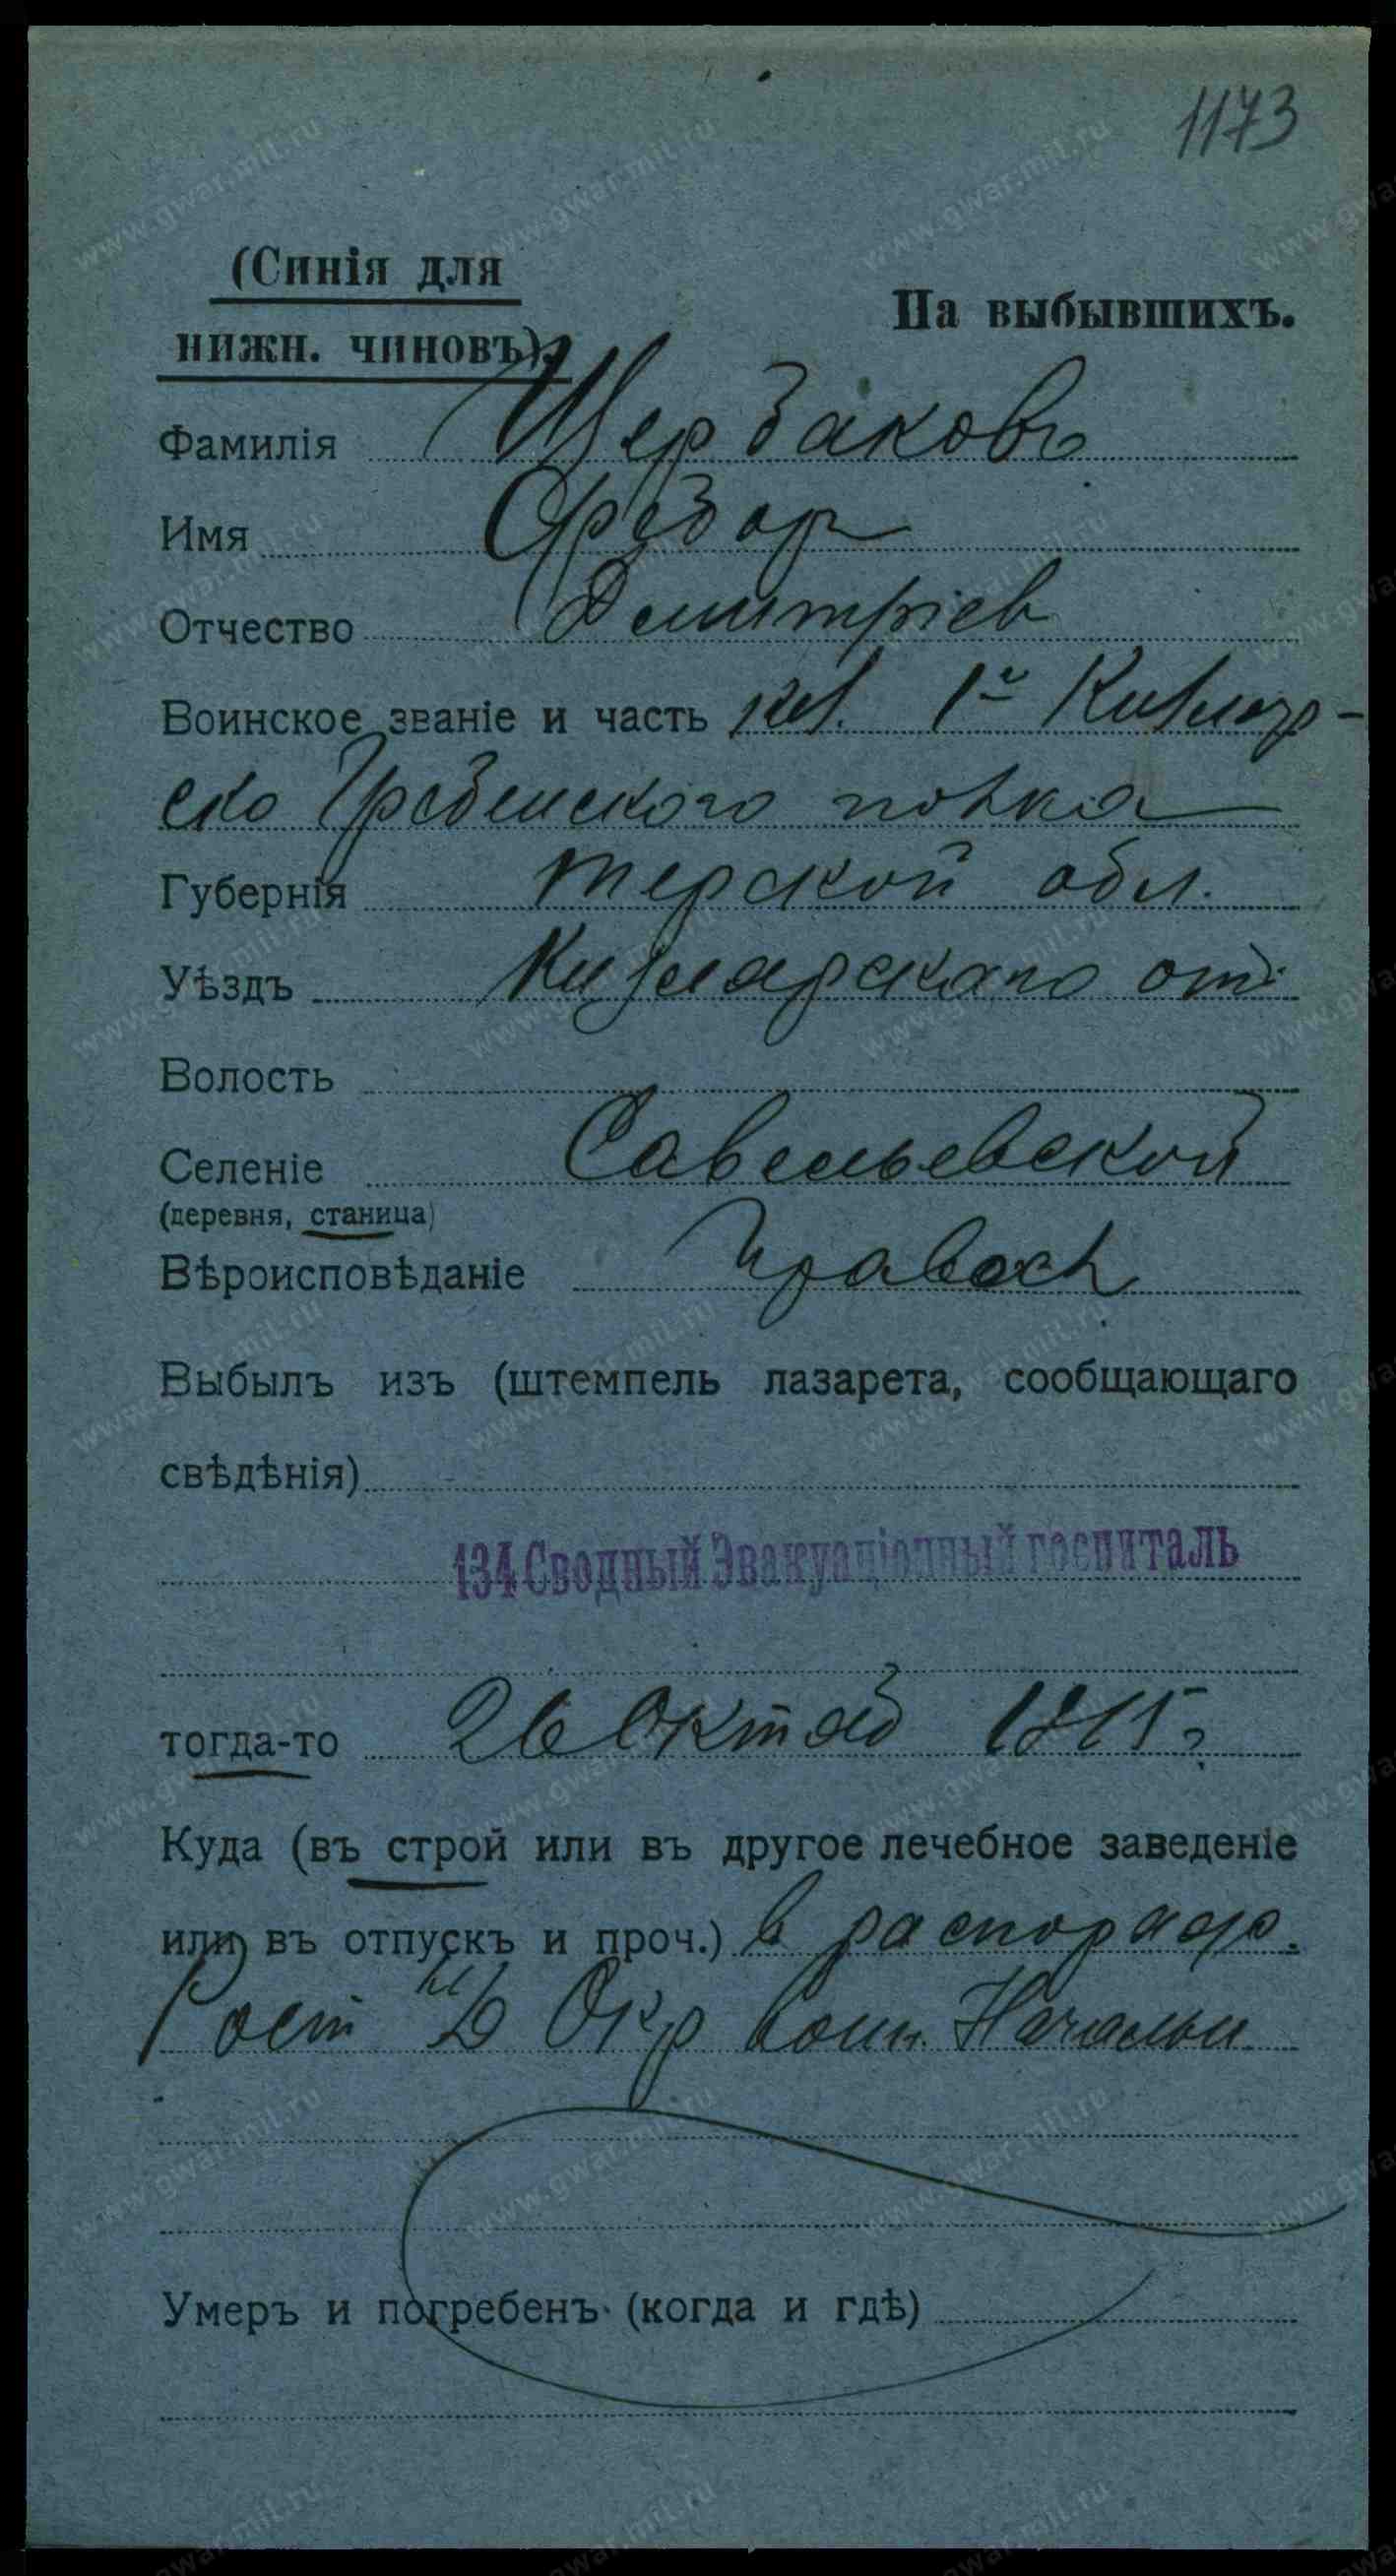 1173
(Синія для
На выбывшихъ.
нижн. чиновъ).
Фамилія Щербаковъ
Имя Ѳедор
Отчество Дмитріев
Воинское званіе и часть каз. 1й Кизляр-
ско Гребенского полка
Губернія Терской обл.
Уѣздъ Кизлярскаго от.
Волость
Селеніе Савельевской
(деревня, станица)
Вѣроисповѣданіе Правосл
Выбылъ изъ (штемпель лазарета, сообщающаго
свѣдѣнія)
134 Сводный Эвакуаціонный госпиталь
тогда-то 26 Октяб 1915 г
Куда (въ строй или въ другое лечебное заведеніе
или въ отпускъ и проч.) в распоряж.
Рост н/Д Окр Воин. Начальн
Умеръ и погребенъ (когда и гдѣ)